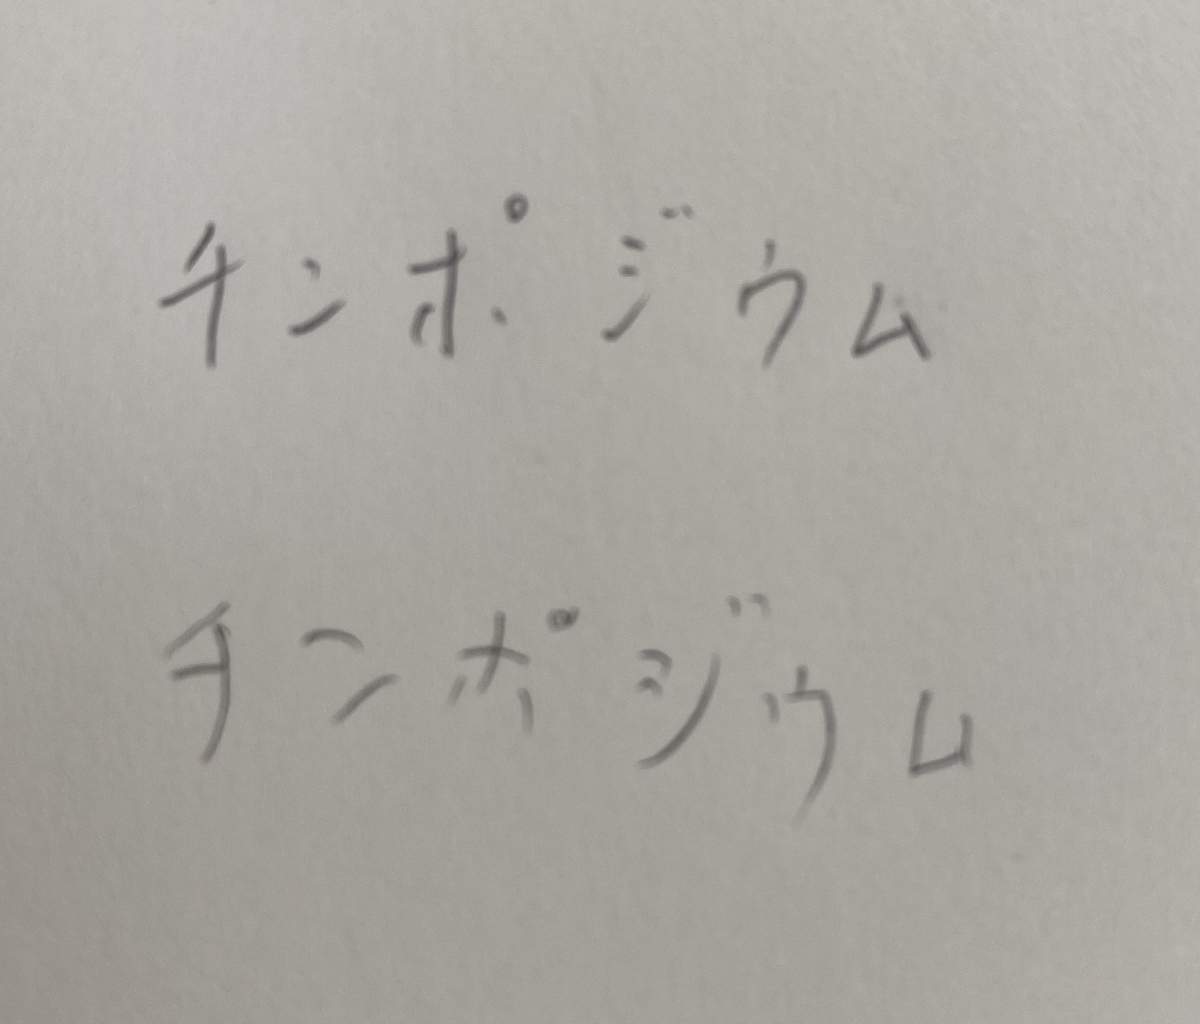 チンポジウム
チンポジウム